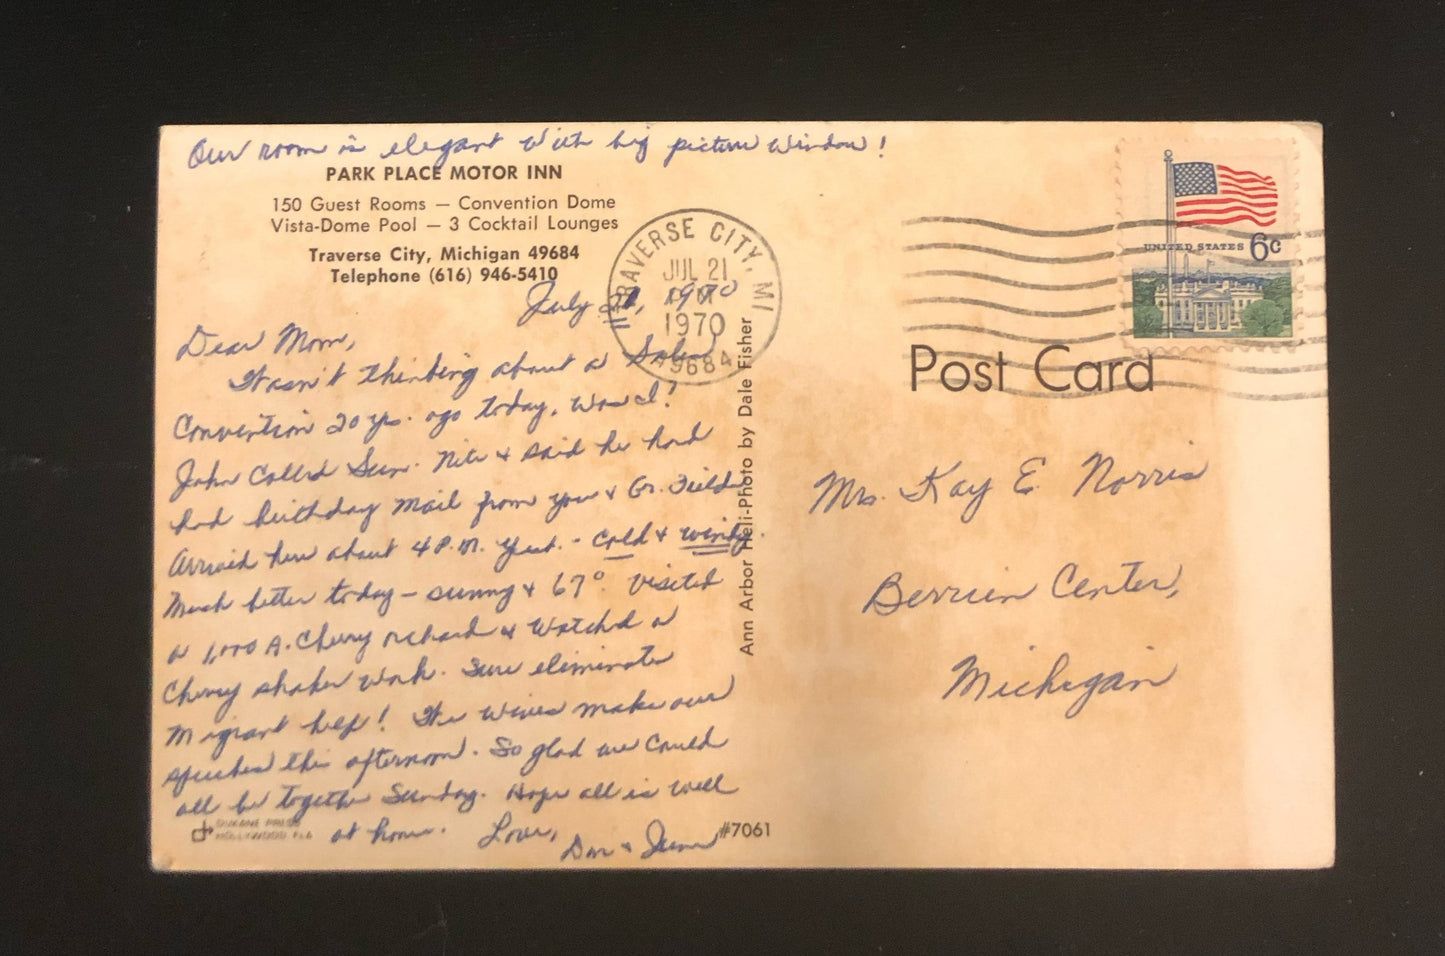 Our room is elegant with big picture window!
PARK PLACE MOTOR INN
150 Guest Rooms — Convention Dome
Vista-Dome Pool — 3 Cocktail Lounges
Traverse City, Michigan 49684
Telephone (616) 946-5410
July 21, 1970
Dear Mom,
Wasn't thinking about a
Convention 20 yrs. ago today, was I!
John called Sun. Nite & said he had
had birthday mail from you & Gr. Fields
Arrived here about 4 P.M. yest. - Cold & windy.
Much better today - sunny & 67°. Visited
a 1,000 A. Cherry orchard & watched a
Cherry shaker work. Sure eliminates
Migrant help! The wives make our
speeches this afternoon. So glad we could
all be together Sunday. Hope all is well
at home. Love,
& June
DUKANE PRESS
HOLLYWOOD, FLA
#7061
Ann Arbor Heli-Photo by Dale Fisher
TRAVERSE CITY, MI
JUL 21
1970
49684
UNITED STATES 6c
Post Card
Mrs. Kay E. Norris
Berrien Center,
Michigan